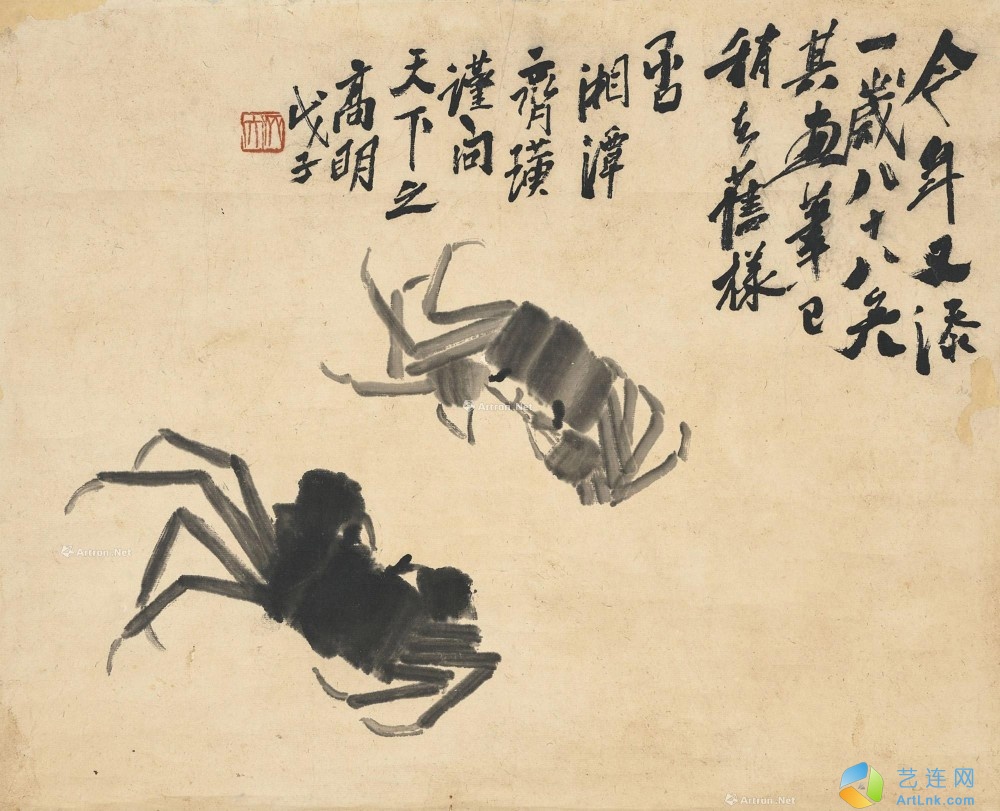 今年又添
一歲八十八矣
其畫筆已
稍去舊樣
否
湘潭
齊璜
謹问
天下之
高明
戊子
Artron.Net
Artron.Net
Artron.Net
艺连网
ArtLnk.com